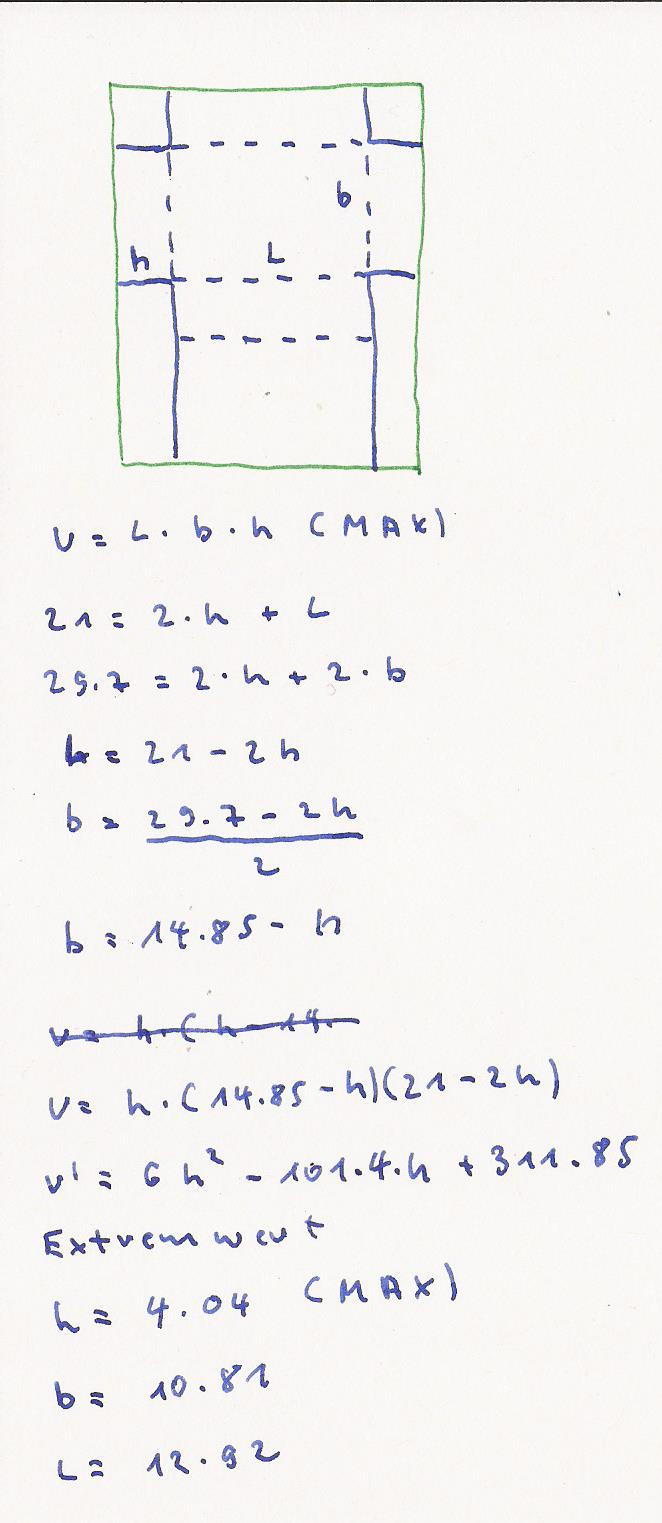 b
h
L
V = L · b · h (MAX)
21 = 2 · h + L
29.7 = 2 · h + 2 · b
L = 21 - 2h
b = 29.7 - 2h
2
b = 14.85 - h
V = h · (h - 14.
V = h · (14.85 - h)(21 - 2h)
V' = 6h² - 101.4 · h + 311.85
Extremwert
h = 4.04 (MAX)
b = 10.81
L = 12.92